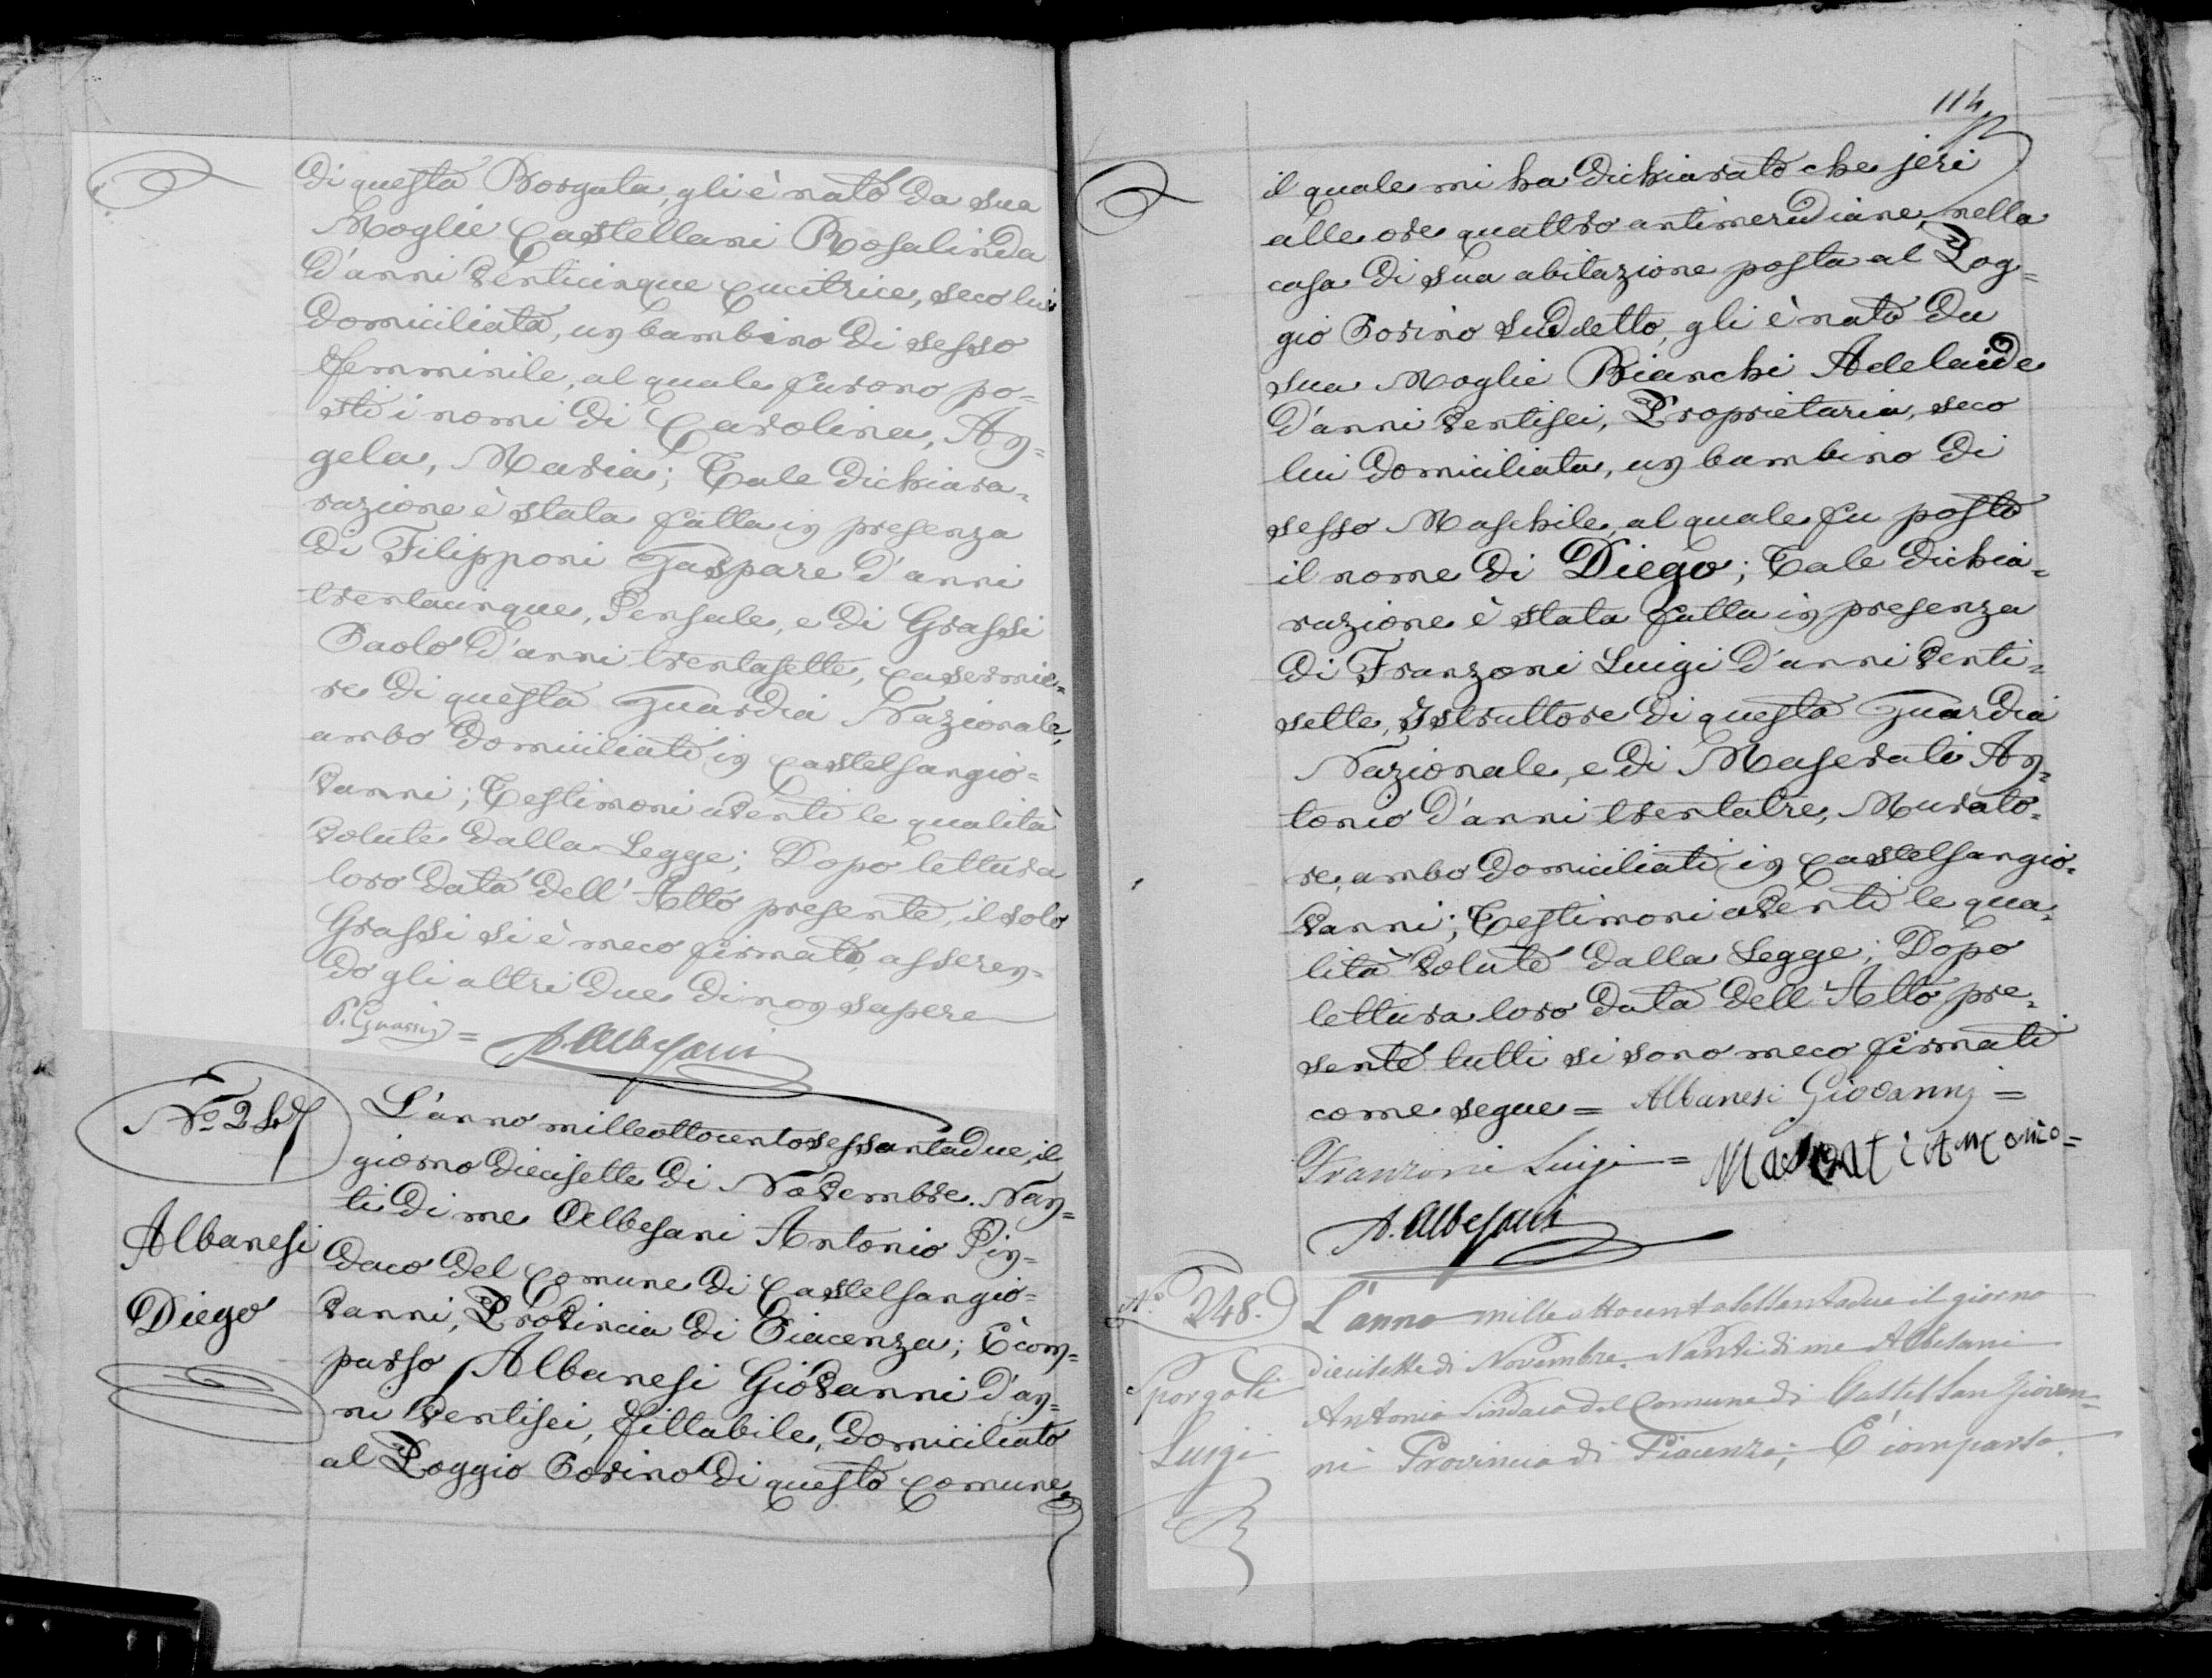 di questa Borgata, gli è nato da sua
Moglie Castellani Rosalinda
d'anni venticinque cucitrice, seco lui
domiciliata, un bambino di sesso
femminile, al quale furono po=
sti i nomi di Carolina, An=
gela, Maria; Tale dichiara=
razione è stata fatta in presenza
di Filipponi Gaspare d'anni
trentacinque, Sensale, e di Grassi
Paolo d'anni trentasette, casermie=
re di questa Guardia Nazionale,
ambo domiciliati in Castelsangio=
vanni; Testimoni aventi le qualità
volute dalla Legge; Dopo lettura
loro data dell'Atto presente, il solo
Grassi si è meco firmato, asseren=
do gli altri due di non sapere
P. Grassi = A. Albesani
No 247
Albanesi
Diego
L'anno milleottocentosessantadue, il
giorno diecisette di Novembre. Nan=
ti di me Albesani Antonio Sin=
daco del Comune di Castelsangio=
vanni, Provincia di Piacenza; È com=
parso Albanesi Giovanni d'an=
ni ventisei, fittabile, domiciliato
al Poggio Sorino di questo Comune,
114
il quale mi ha dichiarato che jeri
alle ore quattro antimeridiane, nella
casa di sua abitazione posta al Pog=
gio Sorino suddetto, gli è nato da
sua Moglie Bianchi Adelaide
d'anni ventisei, Proprietaria, seco
lui domiciliata, un bambino di
sesso Maschile, al quale fu posto
il nome di Diego; Tale dichia=
razione è stata fatta in presenza
di Franzoni Luigi d'anni venti=
sette, Istruttore di questa Guardia
Nazionale, e di Maserati An=
tonio d'anni trentatre, Murato=
re, ambo domiciliati in Castelsangio=
vanni; Testimoni aventi le qua=
lità volute dalla Legge; Dopo
lettura loro data dell'Atto pre=
sente tutti si sono meco firmati
come segue = Albanesi Giovanni =
Franzoni Luigi = Maserati Antonio =
A. Albesani
No 248.
Sporgati
Luigi
L'anno milleottocentosessantadue il giorno
diecisette di Novembre. Nanti di me Albesani
Antonio Sindaco del Comune di Castel San Giovan=
ni Provincia di Piacenza; È comparso